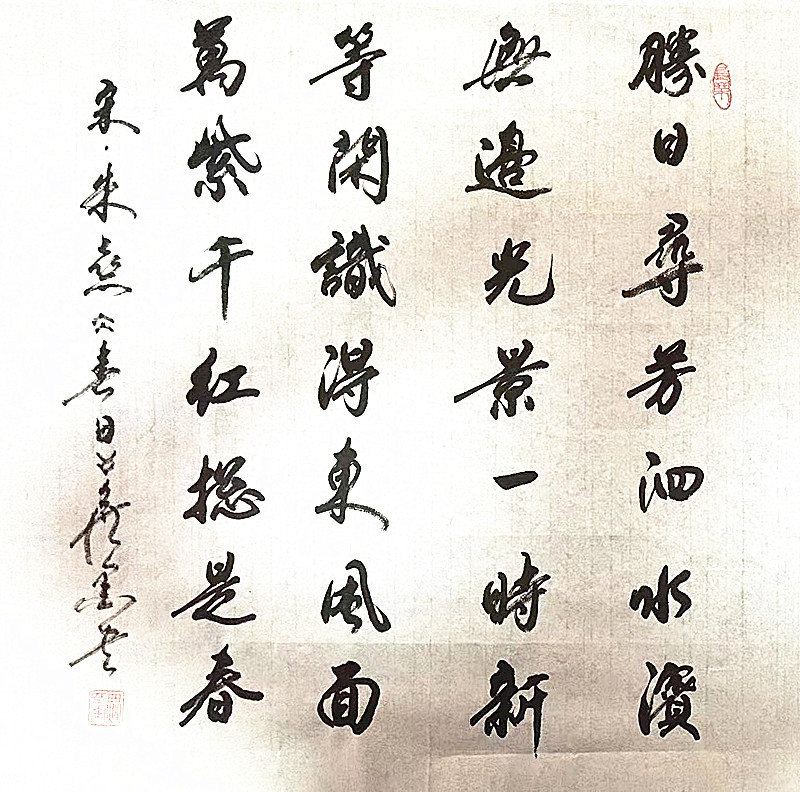 勝日尋芳泗水濱
無邊光景一時新
等閑識得東風面
萬紫千紅揔是春
宋·朱熹《春日》